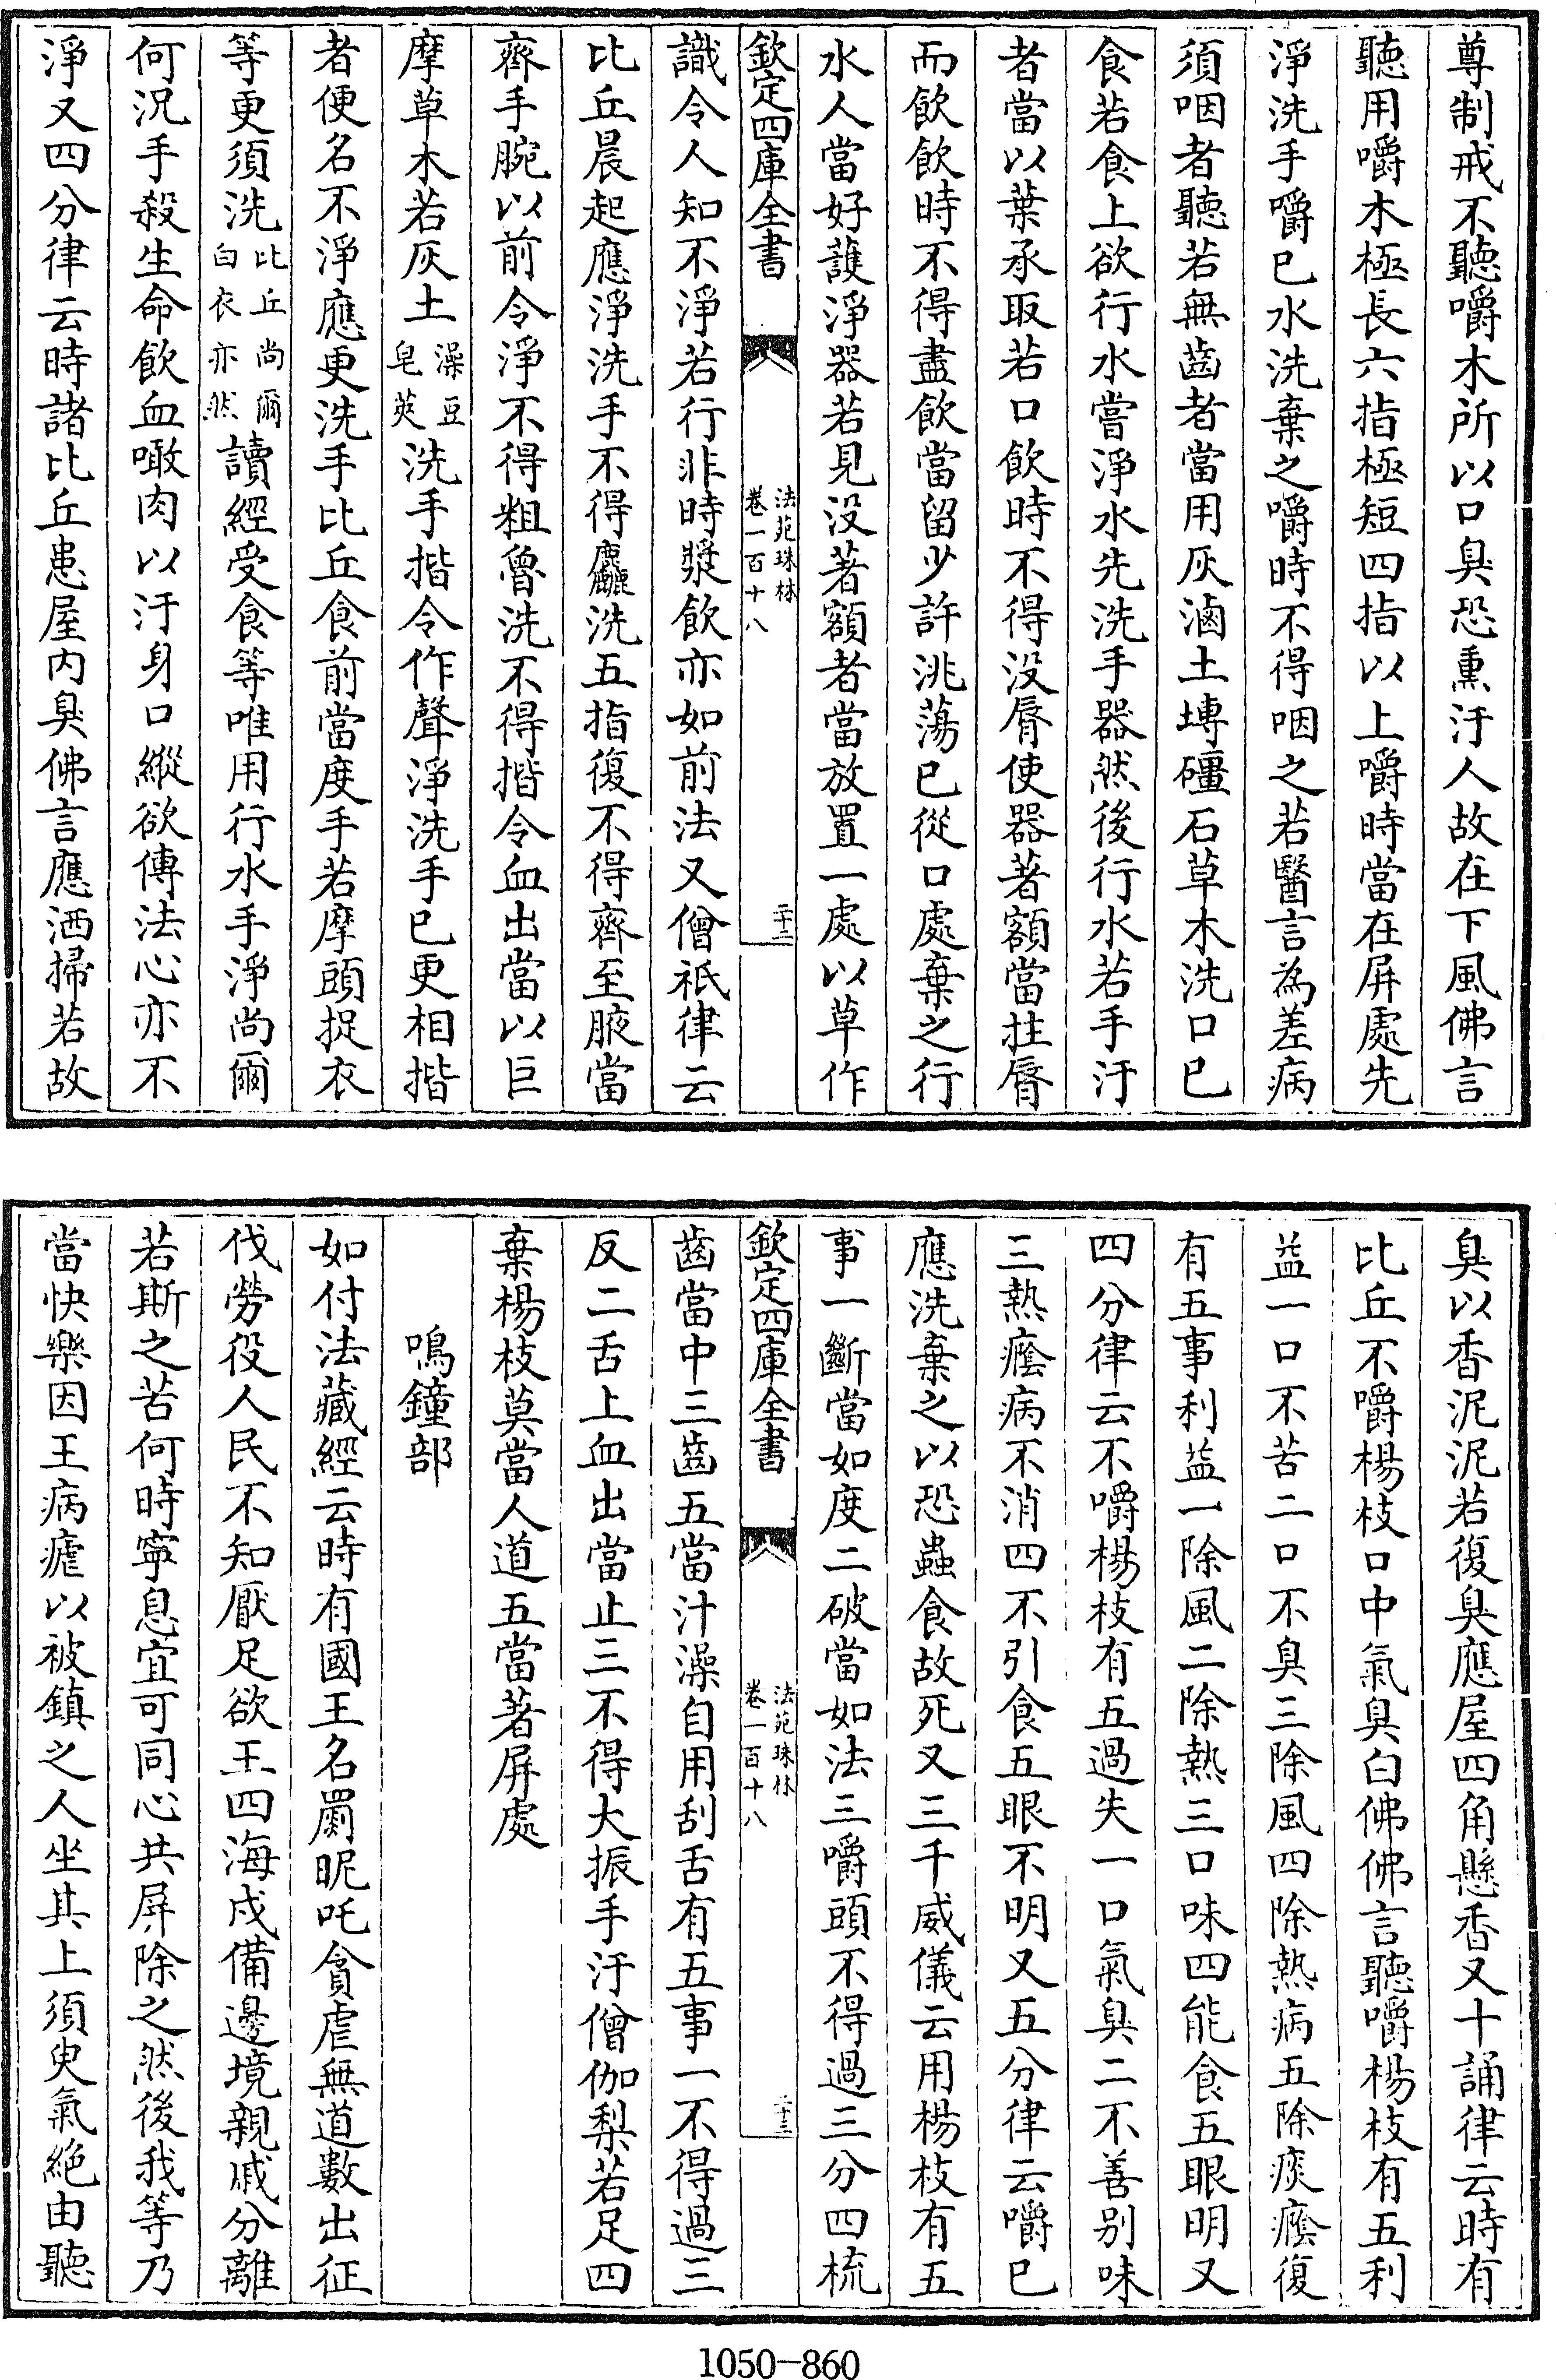 尊制戒不聽嚼木所以口臭恐熏汙人故在下風佛言
聽用嚼木極長六指極短四指以上嚼時當在屏處先
淨洗手嚼已水洗棄之嚼時不得咽之若醫言為差病
須咽者聽若無齒者當用灰滷土塼礓石草木洗口已
食若食上欲行水嘗淨水先洗手器然後行水若手汙
者當以葉承取若口飲時不得没脣使器著額當拄脣
而飲飲時不得盡飲當留少許洮蕩已從口處棄之行
水人當好護淨器若見没著額者當放置一處以草作
欽定四庫全書
法苑珠林
卷一百十八
二十二
識令人知不淨若行非時漿飲亦如前法又僧祇律云
比丘晨起應淨洗手不得麤洗五指復不得齊至腋當
齊手腕以前令淨不得粗魯洗不得揩令血出當以巨
摩草木若灰土澡豆皂莢洗手揩令作聲淨洗手已更相揩
者便名不淨應更洗手比丘食前當度手若摩頭捉衣
等更須洗比丘尚爾白衣亦然讀經受食等唯用行水手淨尚爾
何況手殺生命飲血噉肉以汙身口縱欲傳法心亦不
淨又四分律云時諸比丘患屋内臭佛言應洒掃若故
臭以香泥泥若復臭應屋四角懸香又十誦律云時有
比丘不嚼楊枝口中氣臭白佛佛言聽嚼楊枝有五利
益一口不苦二口不臭三除風四除熱病五除痰癊復
有五事利益一除風二除熱三口味四能食五眼明又
四分律云不嚼楊枝有五過失一口氣臭二不善别味
三熱癊病不消四不引食五眼不明又五分律云嚼已
應洗棄之以恐蟲食故死又三千威儀云用楊枝有五
事一斷當如度二破當如法三嚼頭不得過三分四梳
欽定四庫全書
法苑珠林
卷一百十八
二十三
齒當中三齒五當汁澡自用刮舌有五事一不得過三
反二舌上血出當止三不得大振手汙僧伽梨若足四
棄楊枝莫當人道五當著屏處
鳴鐘部
如付法藏經云時有國王名罽昵吒貪虐無道數出征
伐勞役人民不知厭足欲王四海戍備邊境親戚分離
若斯之苦何時寧息宜可同心共屏除之然後我等乃
當快樂因王病瘧以被鎮之人坐其上須臾氣絶由聽
1050-860